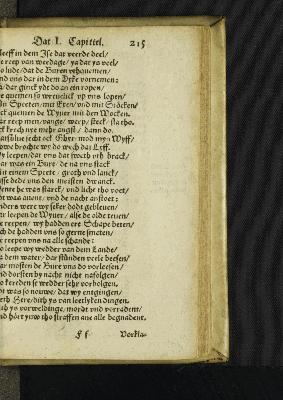 Dat I. Capittel. 215
leeff in dem Ise dat veerde deel/
e reep van weedage/ ya dat ys veel/
so lude/ dat de Buren vornemen;
nd uns dar in dem Dyke vornemen:
a/ dar ginck ydt do an ein ropen/
e quemen so wreuelick up uns lopen/
Mit Speeten/ mit Exen/ und mit Stöcken/
ck quemen de Wyuer mit den Wocken.
ar reep men/ vange/ werp/ steck/ sla tho.
ck krech nye mehr angst/ dann do.
ock myn Wyff/
brochte wy do wech dat Lyff.
y leepen/ dat uns dat sweth uth brack/
ar was ein Bure/ de na uns stack
it einem Speete/ groth und lanck/
sse dede uns den meisten dwanck.
ente he was starck/ und licht tho voet/
dt was auent/ und de nacht anstoet:
nders were wy seker dodt gebleuen/
ar leepen de Wyuer/ alse de olde teuen/
e reepen/ wy hadden ere Schape beten/
ch de hadden uns so gerne smeten/
e reepen uns na alle schande:
o leepe wy wedder van dem Lande/
a dem water/ dar stunden veele beesen/
ar mosten de Bure uns do vorleesen/
nd dorsten by nacht nicht nafolgen/
o kereden se wedder sehr vorbolgen.
dt was so nouwe/ dat wy entgingen/
eth Here/ dith ys van leetlyken dingen.
ith ys vorweldinge/ mordt und vorradent/
nd hört yuw tho straffen ane alle begnadent.
F f Vorkla-